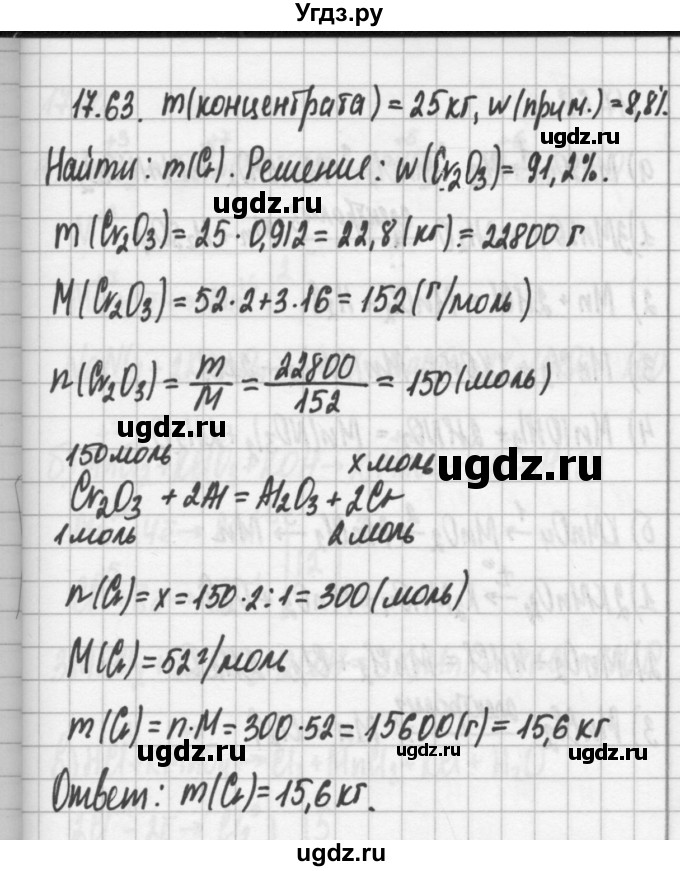 Угдз.ру
17.63. m(концентрата) = 25кг, w(прим.) = 8,8%.
ugdz.ru
Найти: m(Cr). Решение: w(Cr₂O₃) = 91,2%.
ugdz.ru ugdz.ru
m(Cr₂O₃) = 25 · 0,912 = 22,8(кг) = 22800 г
M(Cr₂O₃) = 52·2+3·16 = 152(г/моль)
n(Cr₂O₃) = m/M = 22800/152 = 150(моль)
150моль x моль
ugdz.ru ugdz.ru
Cr₂O₃ + 2Al = Al₂O₃ + 2Cr
1моль 2моль
n(Cr) = x = 150·2:1 = 300(моль)
M(Cr) = 52г/моль
m(Cr) = n·M = 300·52 = 15600(г) = 15,6 кг
ugdz.ru ugdz.ru ugdz.ru
Ответ: m(Cr) = 15,6кг.
ugdz.ru
ugdz.ru